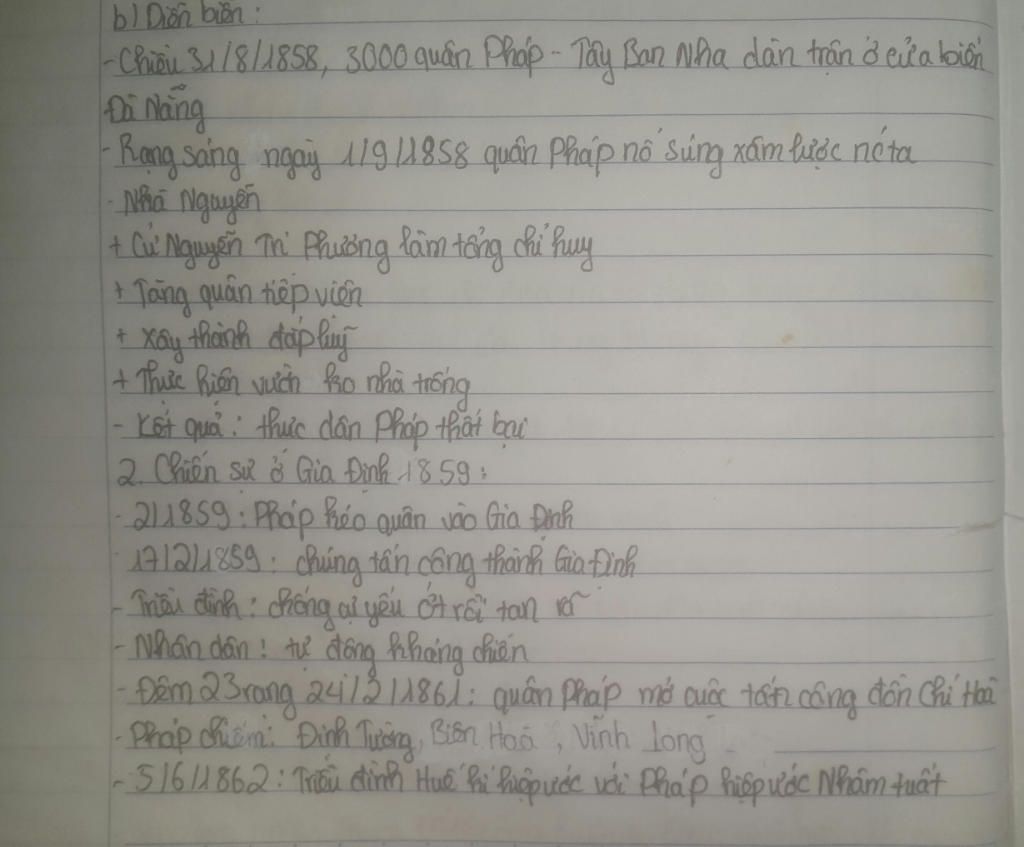 b) Diễn biến:
- Chiều 31/8/1858, 3000 quân Pháp - Tây Ban Nha dàn trận ở cửa biển
Đà Nẵng
- Rạng sáng ngày 1/9/1858 quân Pháp nổ súng xâm lược nc ta
- Nhà Nguyễn
+ Cử Nguyễn Tri Phương làm tổng chỉ huy
+ Tăng quân tiếp viện
+ Xây thành đắp lũy
+ Thực hiện vườn ko nhà trống
- Kết quả: thực dân Pháp thất bại
2. Chiến sự ở Gia Định 1859:
- 2/1859: Pháp kéo quân vào Gia Định
17/2/1859: chúng tấn công thành Gia Định
- Triều đình: chống cự yếu ớt rồi tan rã
- Nhân dân: tự động kháng chiến
- Đêm 23 rạng 24/2/1861: quân Pháp mở cuộc tấn công đồn Chí Hoà
- Pháp chiếm: Định Tường, Biên Hoà, Vĩnh Long
- 5/6/1862: Triều đình Huế kí hiệp ước với Pháp hiệp ước Nhâm tuất